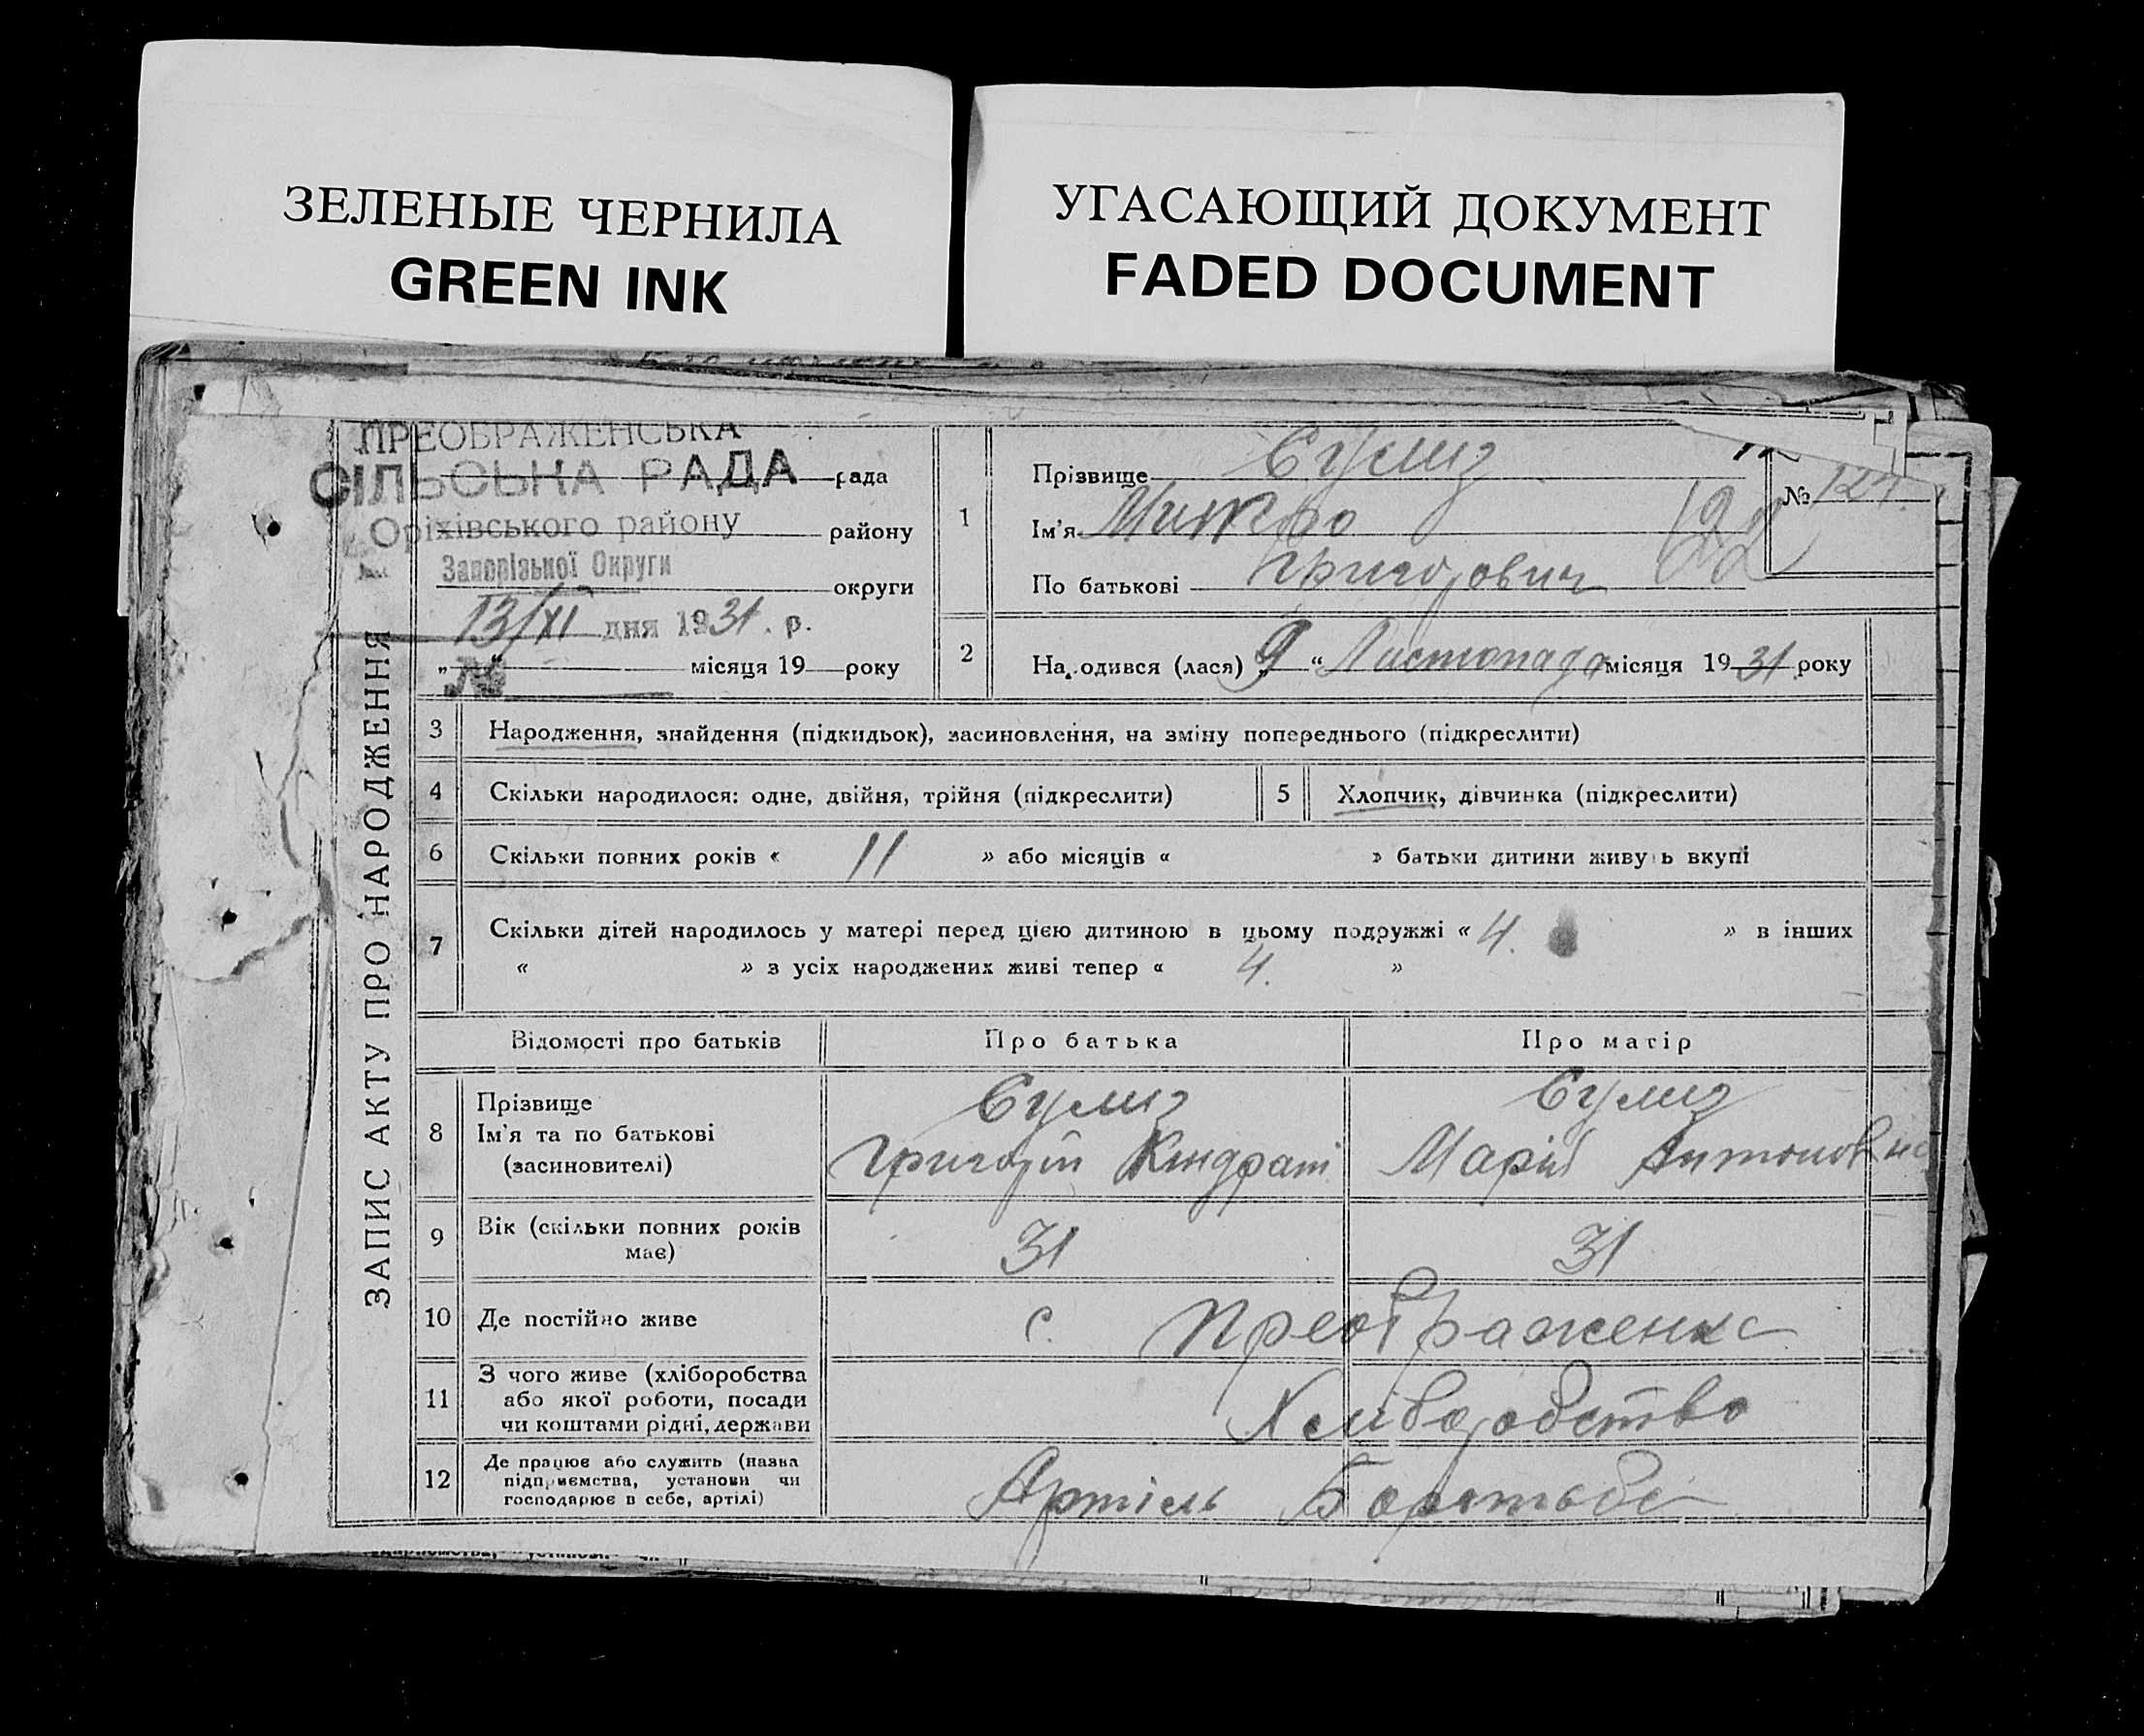 ЗЕЛЕНЫЕ ЧЕРНИЛА
GREEN INK
УГАСАЮЩИЙ ДОКУМЕНТ
FADED DOCUMENT
ЗАПИС АКТУ ПРО НАРОДЖЕННЯ
ПРЕОБРАЖЕНСЬКА
СІЛЬСЬКА РАДА рада
Оріхівського району району
Запорізької Округи
округи
13/XI дня 1931. р.
„ “ місяця 19 року
№
1
Прізвище
Ім'я
По батькові Григорович
№ 124.
122
2 На.одився (лася) „9“ Листопада місяця 1931 року
3 Народження, знайдення (підкидьок), засиновлення, на зміну попереднього (підкреслити)
4 Скільки народилося: одне, двійня, трійня (підкреслити) 5 Хлопчик, дівчинка (підкреслити)
6 Скільки повних років « 11 » або місяців « » батьки дитини живуть вкупі
7 Скільки дітей народилось у матері перед цією дитиною в цьому подружжі « 4. » в інших
« » з усіх народжених живі тепер « 4. »
Відомості про батьків Про батька Про матір
8 Прізвище
Ім'я та по батькові Григорій Кіндрат Марія Антоновна
(засиновителі)
9 Вік (скільки повних років має) 31 31
10 Де постійно живе с. Преображенка
11 З чого живе (хліборобства
або якої роботи, посади
чи коштами рідні, держави Хліборобство
12 Де працює або служить (назва
підприємства, установи чи
господарює в себе, артілі) Артіль Боротьба